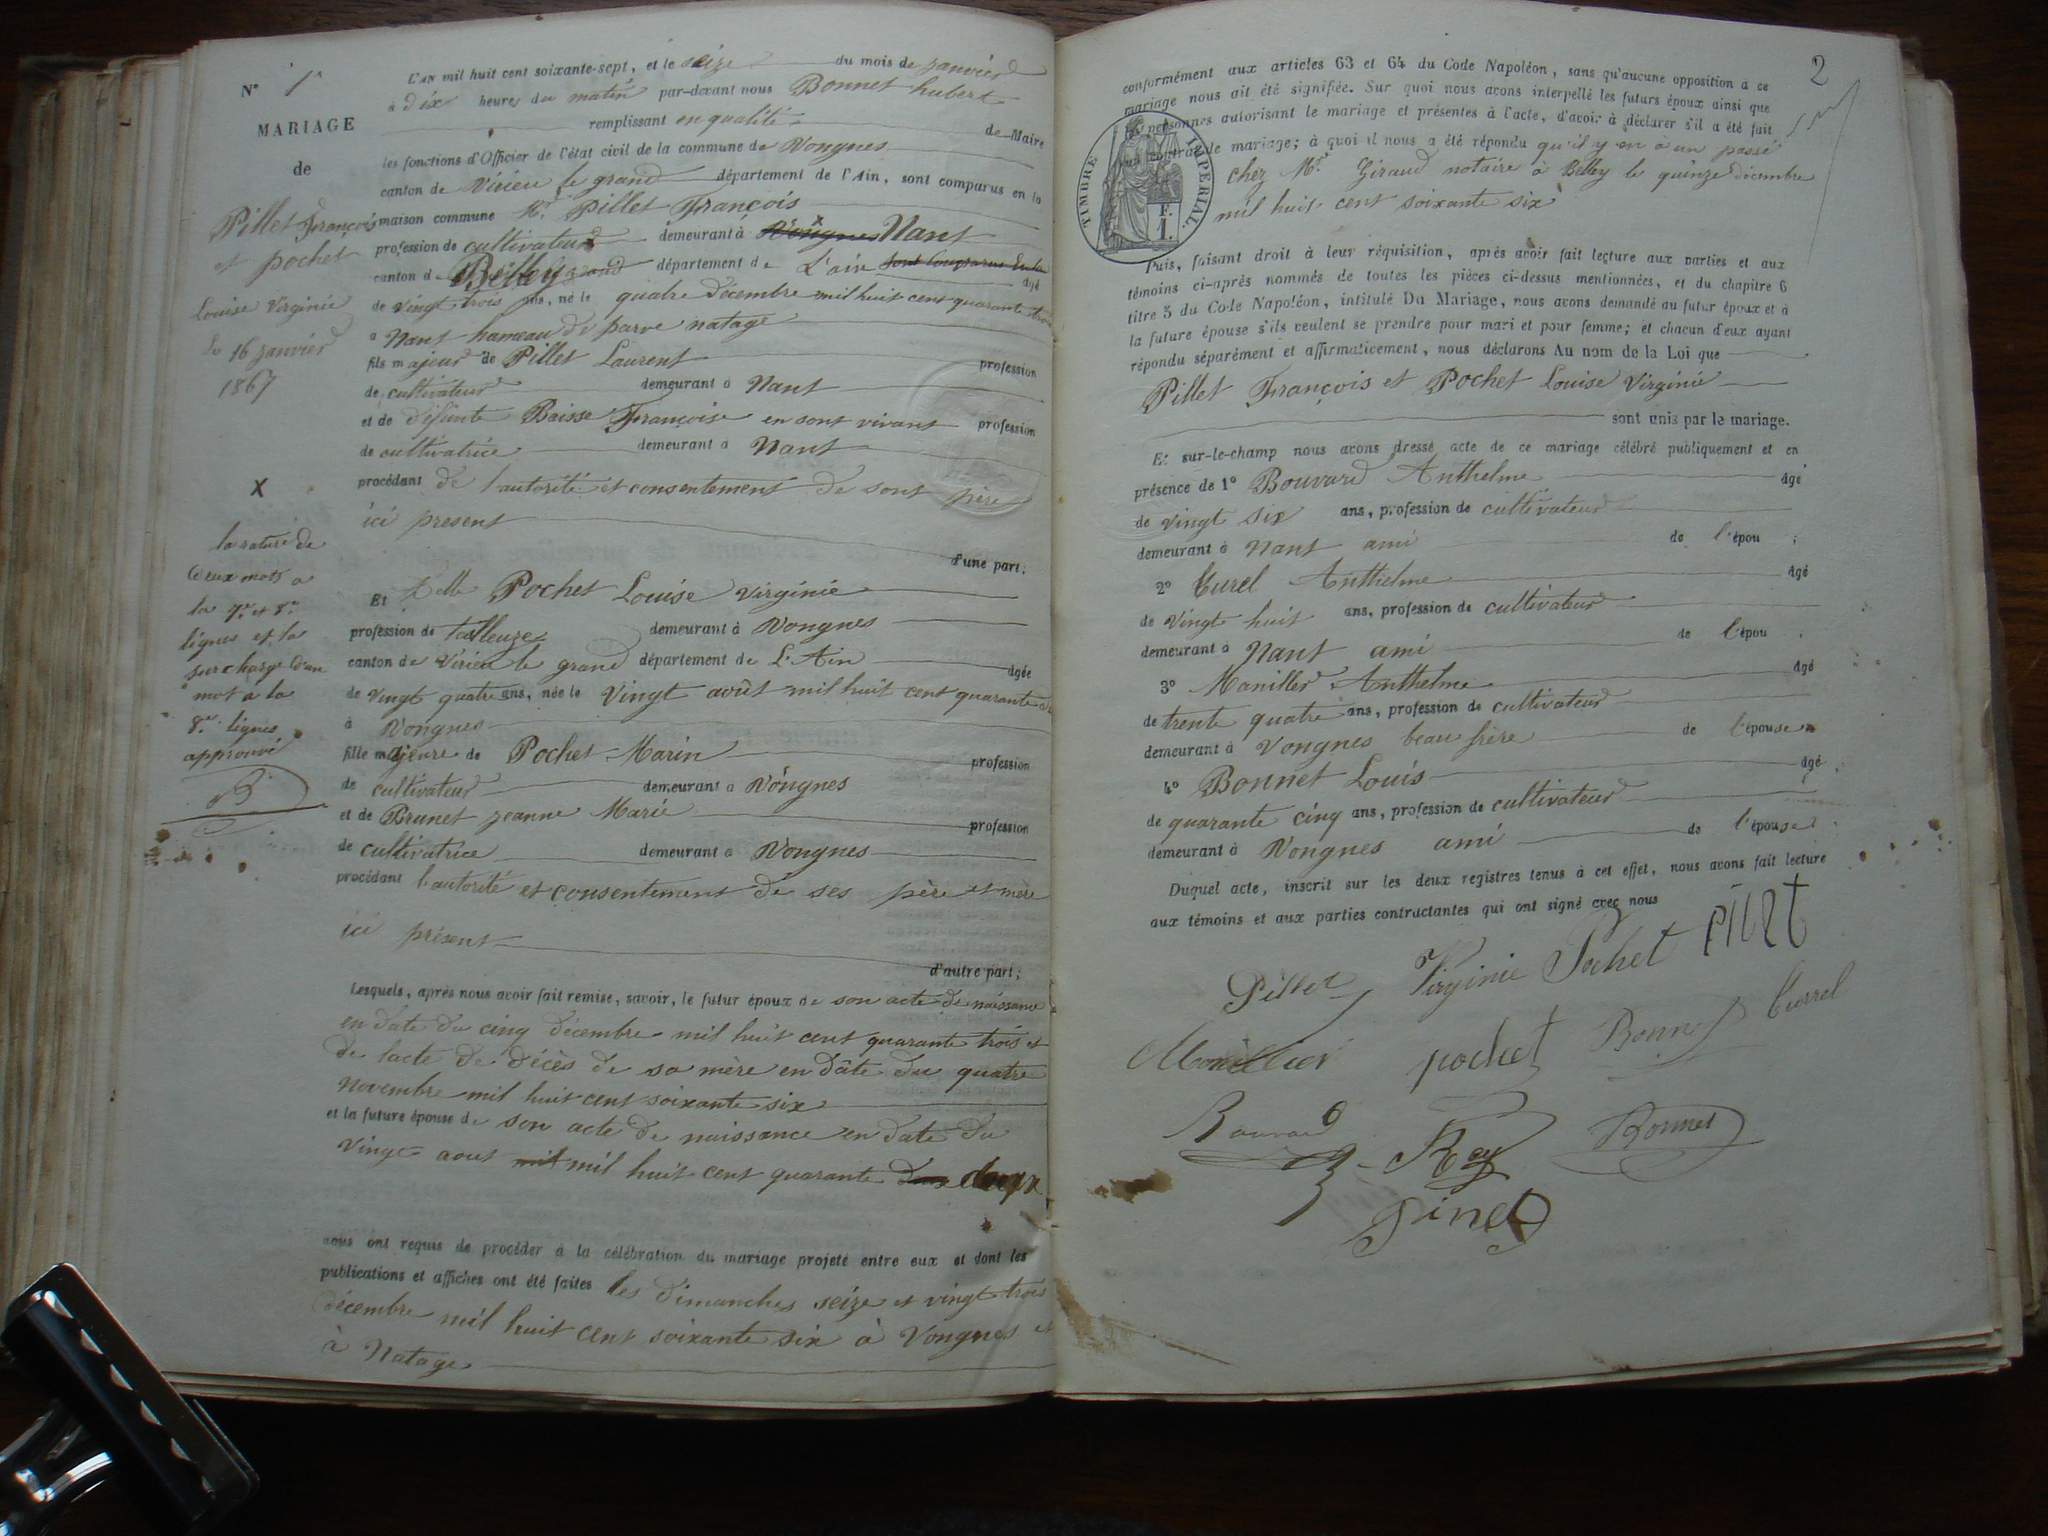 N° 1er
MARIAGE
de
Pillet François
et pochet
Louise Virginie
Le 16 janvier
1867
X
la rature de
deux mots a
la 7e et 8e
lignes et la
surcharge d'un
mot a la
8e lignes
approuvé
B
L'AN mil huit cent soixante-sept, et le seize du mois de janvier
à dix heures du matin par-devant nous Bonnet hubert
remplissant en qualité de Maire
les fonctions d'Officier de l'état civil de la commune de Vongnes
canton de Virieu le grand département de l'Ain, sont comparus en la
maison commune Mr Pillet François
profession de cultivateur demeurant à Vongnes Nant
canton de Belley grand département de L'ain sont comparus en la âgé
de vingt trois ans, né le quatre décembre mil huit cent quarante trois
a Nant hameau de parve natage
fils majeur de Pillet Laurent profession
de cultivateur demeurant à Nant
et de défunte Baisse Françoise en sont vivant profession
de cultivatrice demeurant à Nant
procédant de l'autorité et consentement de sont père
ici present
d'une part;
Et Delle Pochet Louise virginie
profession de tailleuze demeurant à Vongnes
canton de Virieu le grand département de L'Ain âgée
de vingt quatre ans, née le vingt août mil huit cent quarante
à Vongnes
fille majeure de Pochet Marin profession
de cultivateur demeurant à Vongnes
et de Brunet jeanne Marie profession
de cultivatrice demeurant à Vongnes
procédant l'autorité et consentement de ses père et mère
ici présent
d'autre part;
Lesquels, après nous avoir fait remise, savoir, le futur époux de son acte de naissance
en date du cinq décembre mil huit cent quarante trois et
de lacte de décès de sa mère en dâte du quatre
novembre mil huit cent soixante six
et la future épouse de son acte de naissance en date du
vingt aout mil mil huit cent quarante deux deux
nous ont requis de procéder à la célébration du mariage projeté entre eux et dont les
publications et affiches ont été faites les dimanches seize et vingt trois
décembre mil huit cent soixante six à Vongnes et
à Natage
2
conformément aux articles 63 et 64 du Code Napoléon, sans qu'aucune opposition à ce
mariage nous ait été signifiée. Sur quoi nous avons interpellé les futurs époux ainsi que
les personnes autorisant le mariage et présentes à l'acte, d'avoir à déclarer s'il a été fait
un contrat de mariage; à quoi il nous a été répondu qu'il y en à un passé
chez Mr Giraud notaire à Belley le quinze décembre
mil huit cent soixante six
TIMBRE IMPERIAL
F.
1.
Puis, faisant droit à leur réquisition, après avoir fait lecture aux parties et aux
témoins ci-après nommés de toutes les pièces ci-dessus mentionnées, et du chapitre 6
titre 5 du Code Napoléon, intitulé Du Mariage, nous avons demandé au futur époux et à
la future épouse s'ils veulent se prendre pour mari et pour femme; et chacun d'eux ayant
répondu séparément et affirmativement, nous déclarons Au nom de la Loi que
Pillet François et Pochet Louise Virginie
sont unis par le mariage.
Et sur-le-champ nous avons dressé acte de ce mariage célébré publiquement et en
présence de 1° Bouvard Anthelme âgé
de vingt six ans, profession de cultivateur
demeurant à Nant ami de l'épou ;
2° Curel Anthelme âgé
de vingt huit ans, profession de cultivateur
demeurant à Nant ami de l'épou ;
3° Manillier Anthelme âgé
de trente quatre ans, profession de cultivateur
demeurant à Vongnes beau frère de l'épouse
4° Bonnet Louis âgé
de quarante cinq ans, profession de cultivateur
demeurant à Vongnes ami de l'épouse
Duquel acte, inscrit sur les deux registres tenus à cet effet, nous avons fait lecture
aux témoins et aux parties contractantes qui ont signé avec nous
Pillet Virginie Pochet Pillet
Manillier pochet Bonnet Currel
Bouvard Rey Bonnet
Pinet